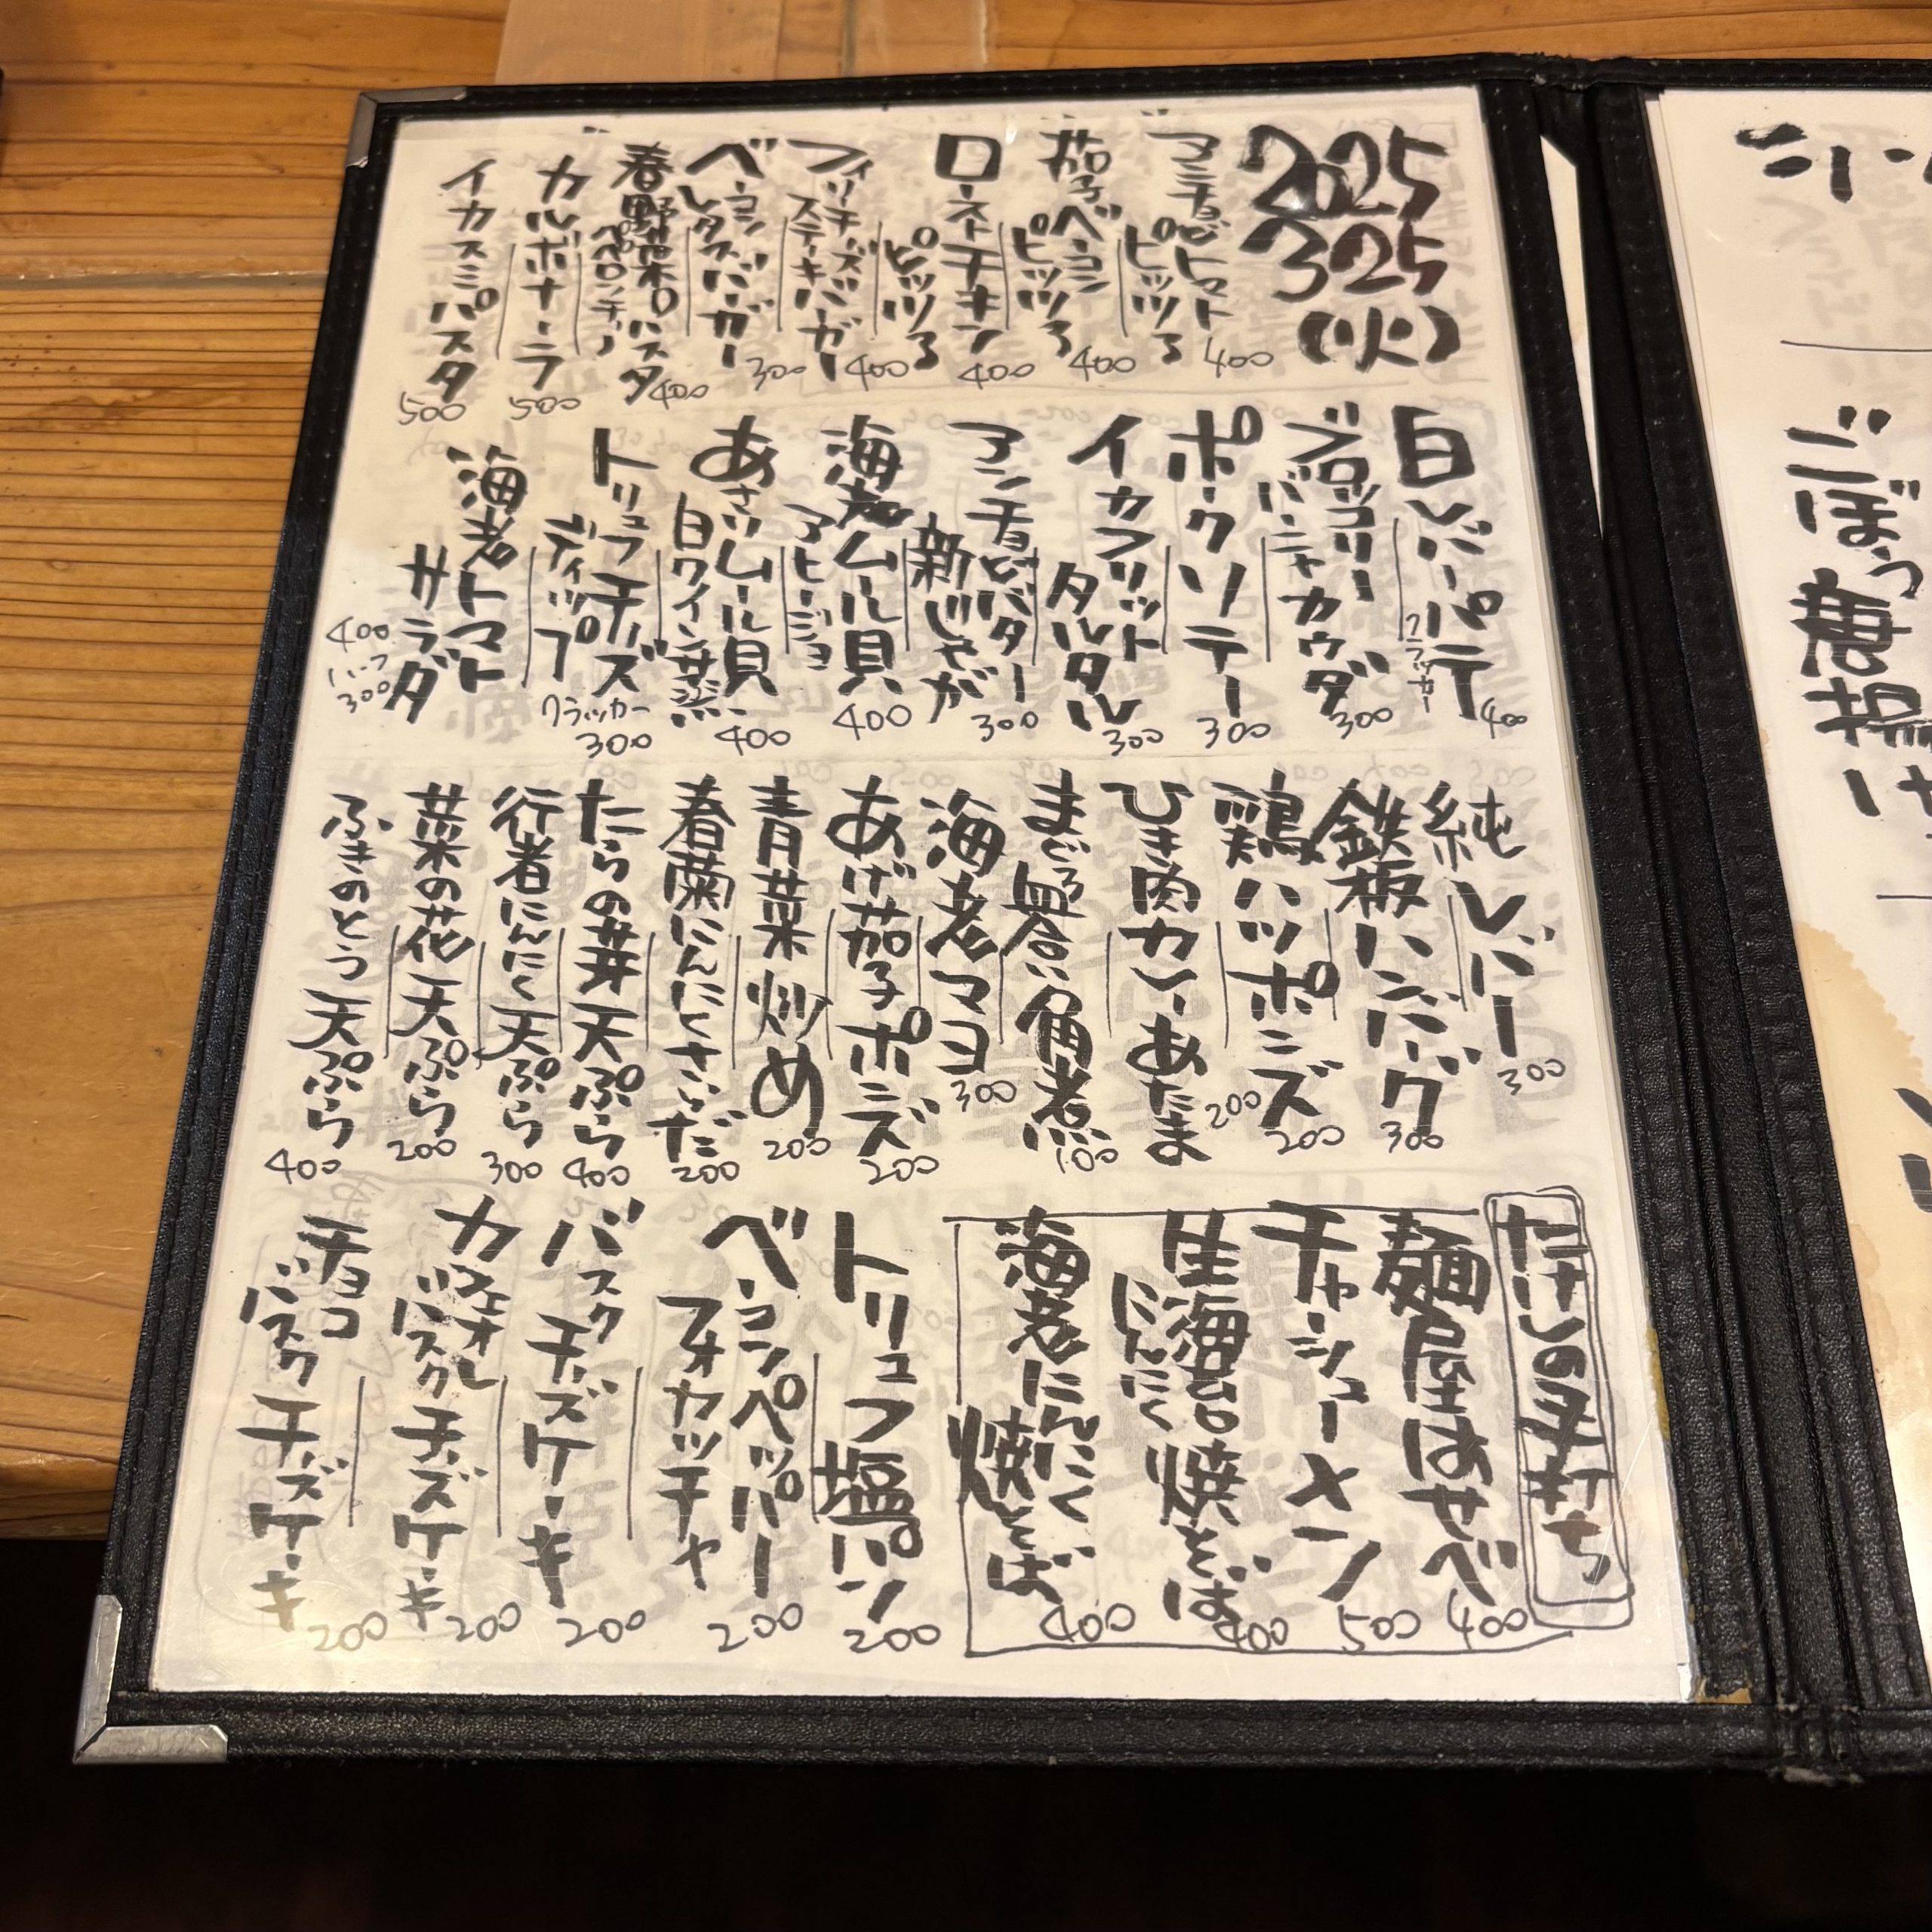 2025
3 25
(火)
アンチョビトマト
ピッツァ
400
茄子ベーコン
ピッツァ
400
ローストチキン
ピッツァ
400
フィリーチーズ
ステーキバーガー
400
ベーコン
レタスバーガー
300
春野菜
ペペロンチーノ
パスタ
400
カルボナーラ
500
イカスミパスタ
500
白レバーパテ
クラッカー
400
ブロッコリー
バーニャカウダ
300
ポークソテー
300
イカフリット
タルタル
300
アンチョビバター
新じゃが
300
海老ムール貝
アヒージョ
400
あさりムール貝
白ワイン蒸し
400
トリュフチーズ
ディップ
クラッカー
300
海老トマト
サラダ
400
ハーフ
300
純レバー
300
鉄板ハンバーグ
300
鶏ハツポンズ
200
ひき肉カレーあたま
200
まぐろ
角煮
100
海老マヨ
300
あげ茄子ポンズ
200
青菜炒め
200
春菊にんにくサラダ
200
たらの芽天ぷら
400
行者にんにく天ぷら
300
菜の花天ぷら
200
ふきのとう天ぷら
400
麺屋はせべ
400
チャーシューメン
500
生海苔
にんにく
焼そば
400
海老にんにく
焼そば
400
トリュフ塩パン
200
ベーコンペッパー
フォカッチャ
200
バスクチーズケーキ
200
カフェオレ
バスクチーズケーキ
200
チョコ
バスクチーズケーキ
200
ごぼう唐揚